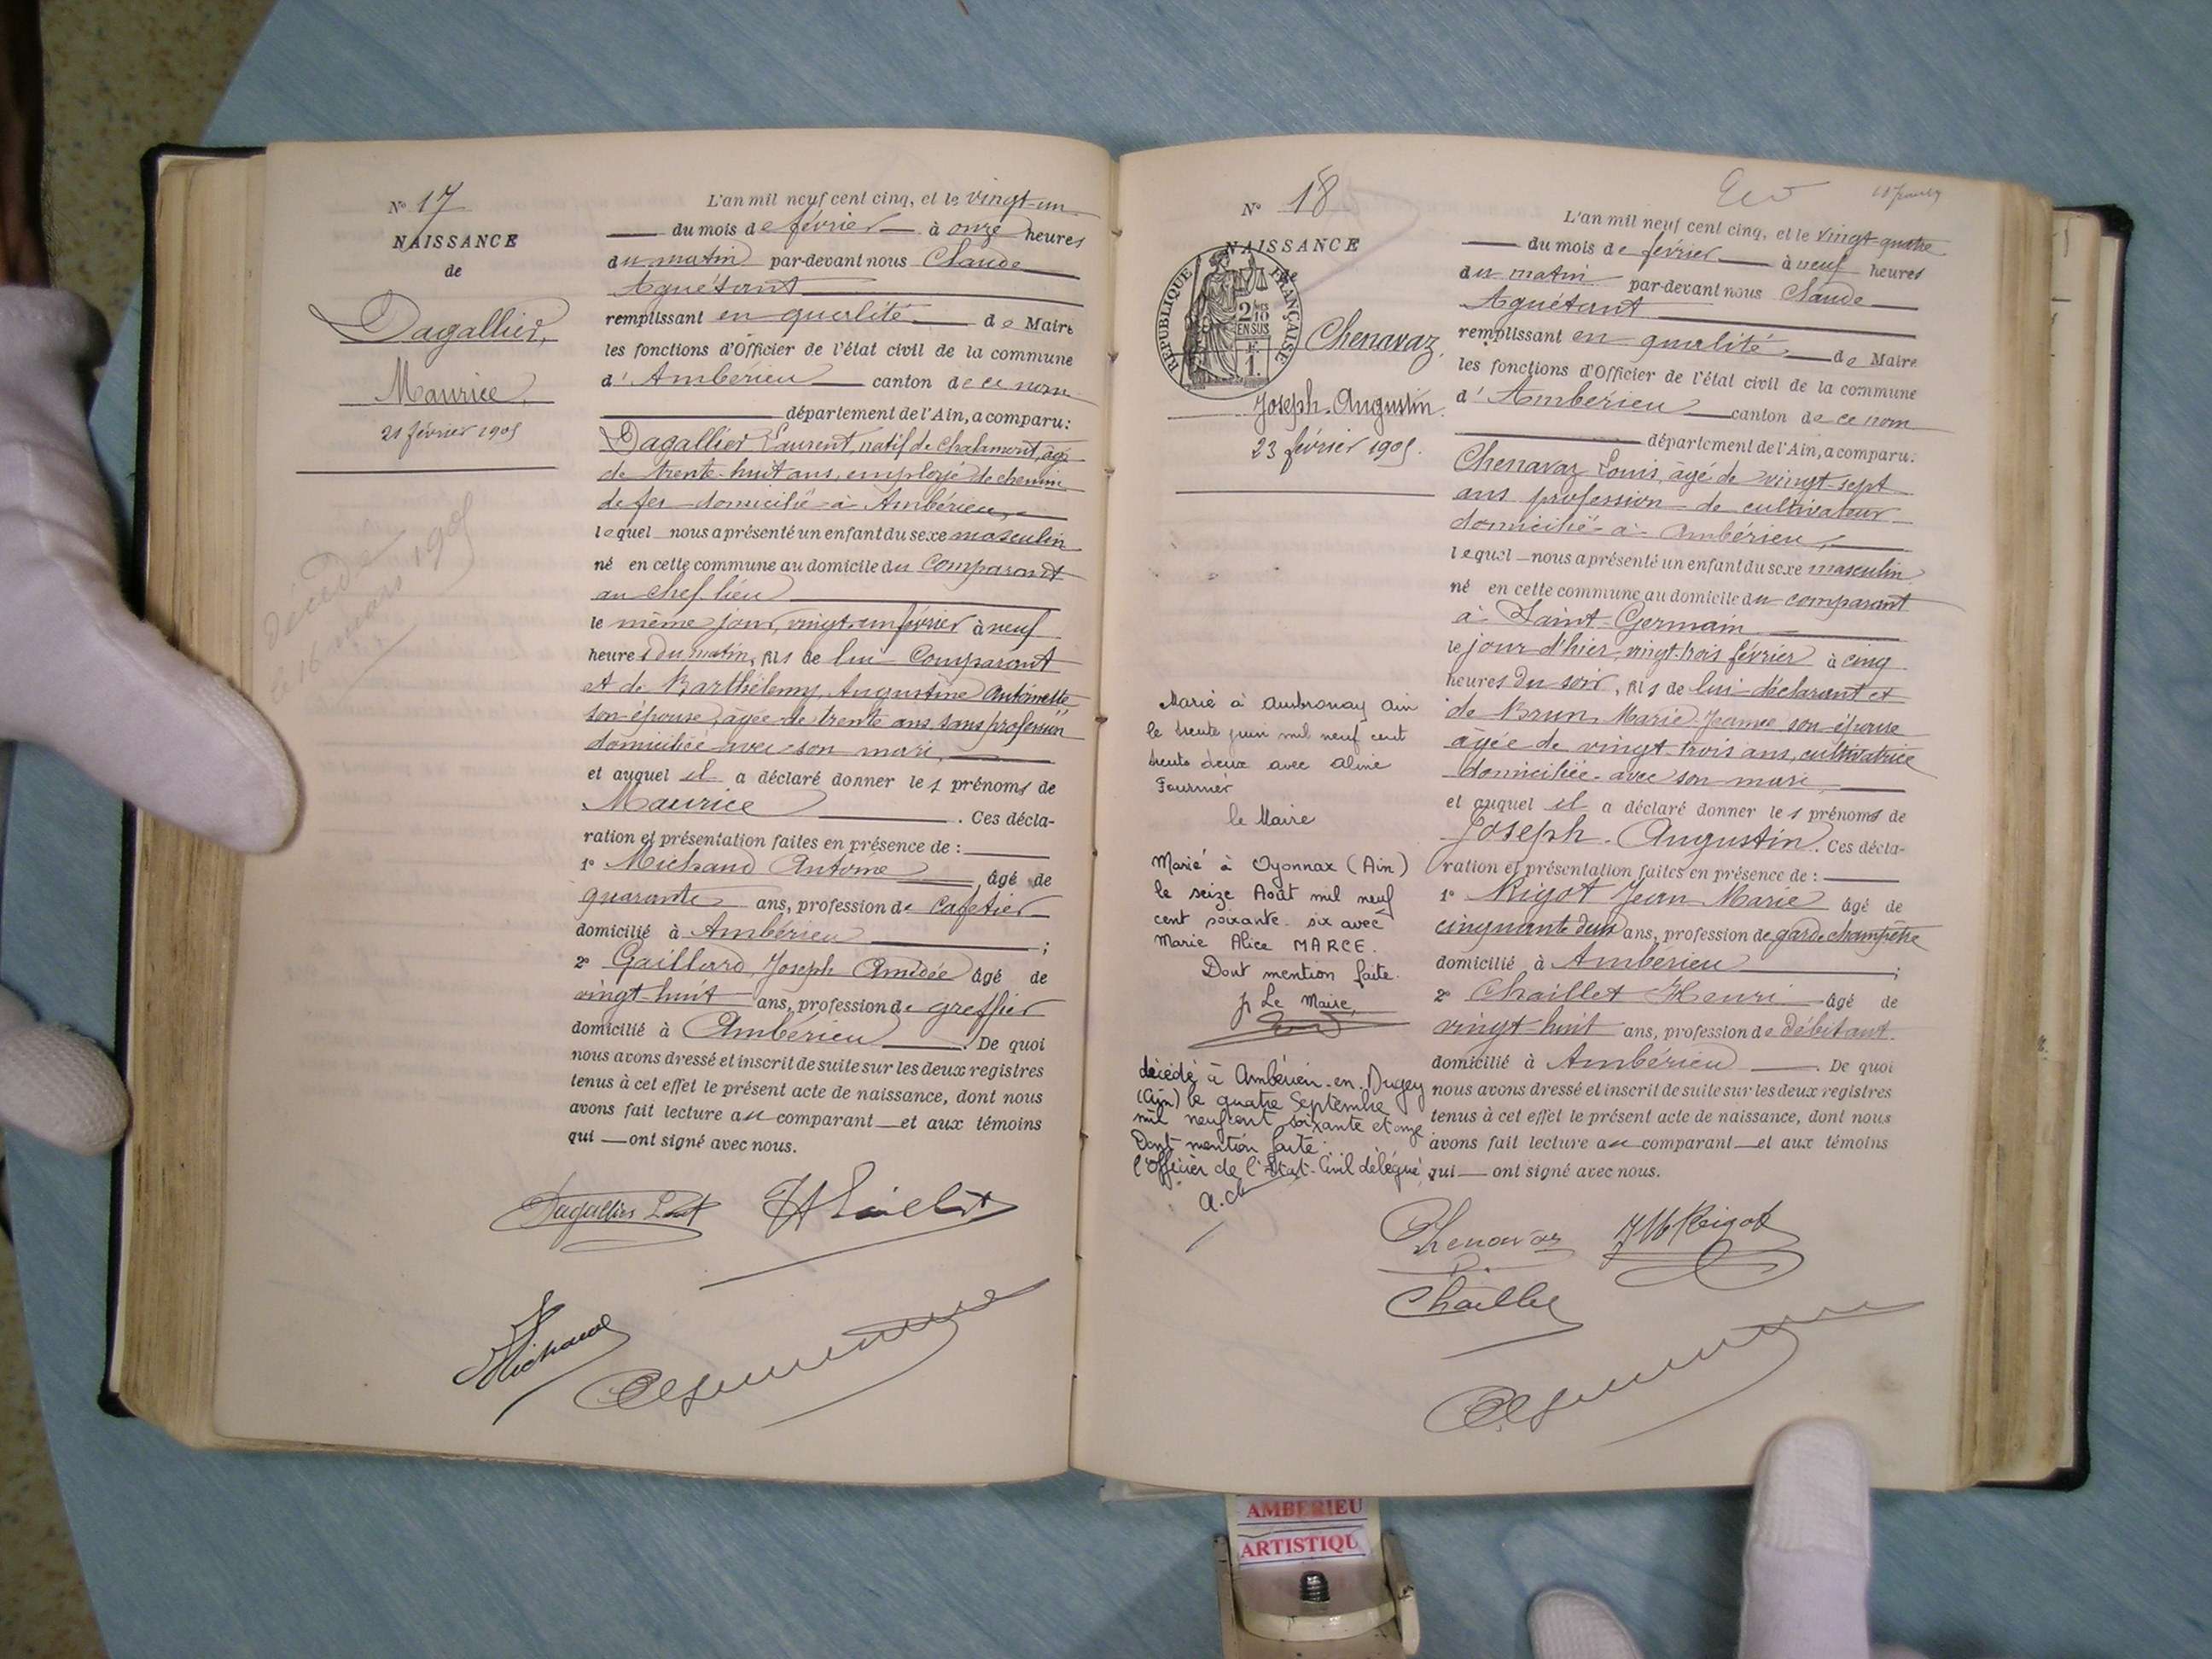 N° 17
NAISSANCE
de
Dagallier,
Maurice,
21 février 1905
décédé
le 16 mars 1905
L'an mil neuf cent cinq, et le vingt-un
du mois de février à onze heures
du matin par-devant nous Claude
Aguétant
remplissant en qualité de Maire
les fonctions d'Officier de l'état civil de la commune
d'Ambérieu canton de ce nom
département de l'Ain, a comparu:
Dagallier Laurent, natif de Chalamont, âgé
de trente-huit ans, employé de chemin
de fer domicilié à Ambérieu,
lequel nous a présenté un enfant du sexe masculin
né en cette commune au domicile du comparant
au chef lieu
le même jour, vingt-un février à neuf
heures du matin, fils de lui comparant
et de Barthélemy Augustine Antoinette
son épouse, âgée de trente ans, sans profession
domiciliée avec son mari,
et auquel il a déclaré donner les prénoms de
Maurice . Ces décla-
ration et présentation faites en présence de :
1° Michaud Antoine âgé de
quarante ans, profession de cafetier
domicilié à Ambérieu ;
2° Gaillard, Joseph Amédée âgé de
vingt-huit ans, profession de greffier
domicilié à Ambérieu . De quoi
nous avons dressé et inscrit de suite sur les deux registres
tenus à cet effet le présent acte de naissance, dont nous
avons fait lecture au comparant et aux témoins
qui ont signé avec nous.
Dagallier
Michaud
N° 18
NAISSANCE
de
RÉPUBLIQUE FRANÇAISE
2/10
EN SUS
1.
Chenavaz,
Joseph-Augustin.
23 février 1905.
Marié à Ambronay Ain
le trente juin mil neuf cent
trente deux avec Aline
Fournier
le Maire
Marié à Oyonnax (Ain)
le seize Août mil neuf
cent soixante-six avec
Marie Alice MARCE.
Dont mention faite.
p Le Maire,
décédé à Ambérieu-en-Bugey
(Ain) le quatre Septembre
mil neuf cent soixante et onze
Dont mention faite.
l'Officier de l'Etat-Civil délégué,
L'an mil neuf cent cinq, et le vingt-quatre
du mois de février à neuf heures
du matin par-devant nous Claude
Aguétant
remplissant en qualité de Maire
les fonctions d'Officier de l'état civil de la commune
d'Ambérieu canton de ce nom
département de l'Ain, a comparu.
Chenavaz Louis, âgé de vingt-sept
ans profession de cultivateur
domicilié à Ambérieu,
lequel nous a présenté un enfant du sexe masculin
né en cette commune au domicile du comparant
à Saint-Germain
le jour d'hier, vingt-trois février à cinq
heures du soir, fils de lui déclarant et
de Brun, Marie-Jeanne son épouse
âgée de vingt-trois ans, cultivatrice
domiciliée avec son mari
et auquel il a déclaré donner les prénoms de
Joseph-Augustin. Ces décla-
ration et présentation faites en présence de :
1° Rigot Jean Marie âgé de
cinquante deux ans, profession de garde champêtre
domicilié à Ambérieu ;
2° Chaillet Henri âgé de
vingt-huit ans, profession de débitant
domicilié à Ambérieu . De quoi
nous avons dressé et inscrit de suite sur les deux registres
tenus à cet effet le présent acte de naissance, dont nous
avons fait lecture au comparant et aux témoins
qui ont signé avec nous.
Chenavaz
JM Rigot
Chaillet
AMBERIEU
ARTISTIQU